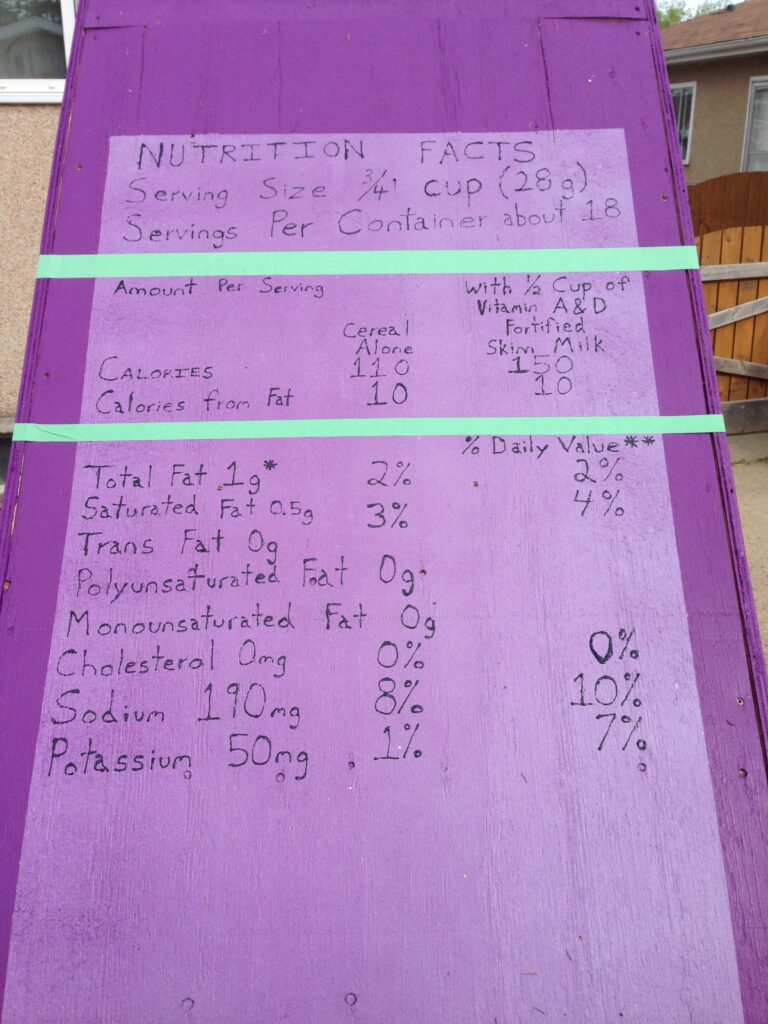 NUTRITION FACTS
Serving Size 3/4 cup (28g)
Servings Per Container about 18
Amount Per Serving
with 1/2 Cup of
Vitamin A & D
Fortified
Skim Milk
Cereal
Alone
CALORIES 110 150
Calories from Fat 10 10
% Daily Value**
Total Fat 1g* 2% 2%
Saturated Fat 0.5g 3% 4%
Trans Fat 0g
Polyunsaturated Fat 0g
Monounsaturated Fat 0g
Cholesterol 0mg 0% 0%
Sodium 190mg 8% 10%
Potassium 50mg 1% 7%